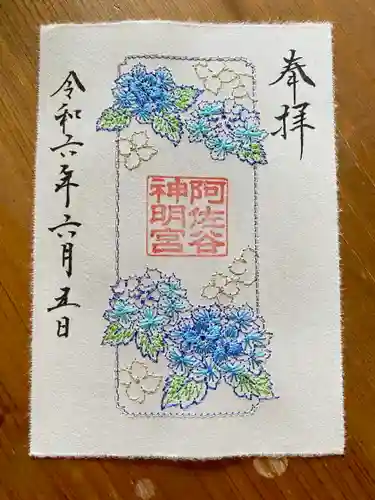 奉拝
阿佐谷
神明宮
令和六年六月五日